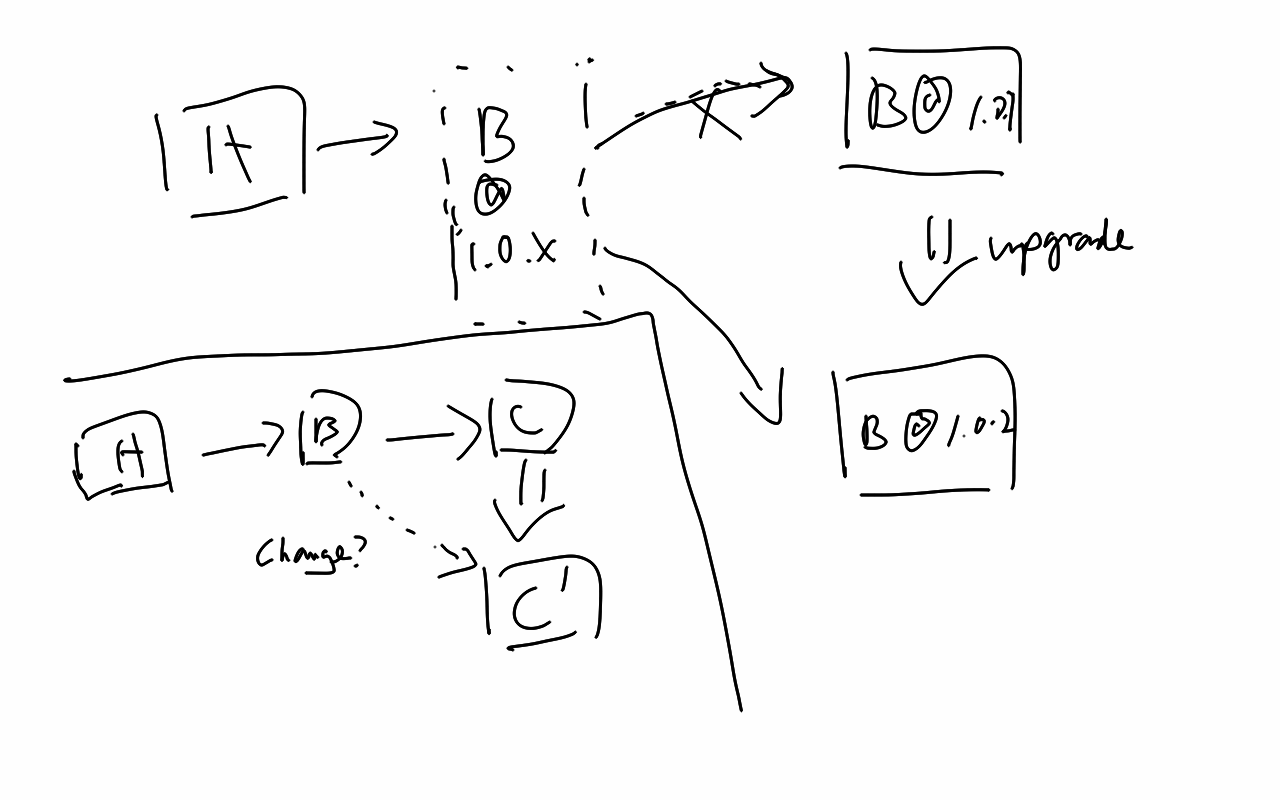 A
B
@
1.0.x
B@1.0.1
upgrade
B@1.0.2
A
B
C
Change?
C'